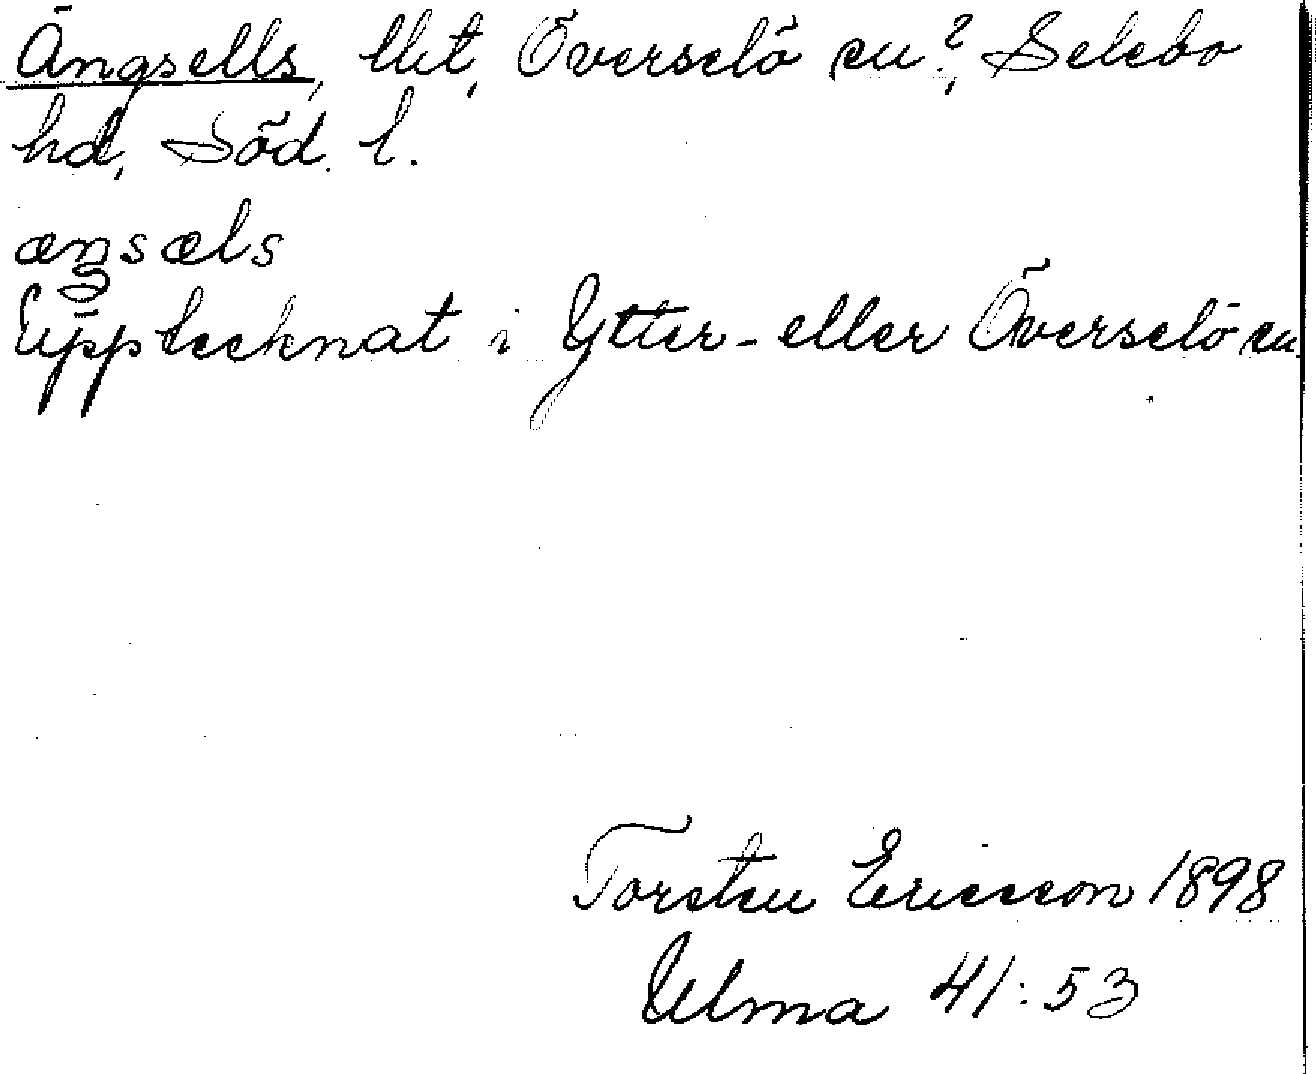 Ängsells, llit, Överselö sn?, Selebo
hd, Söd. l.
æŋsæls
Upptecknat i Ytter- eller Överselö sn
Torsten Ericsson 1898
Ulma 41:53